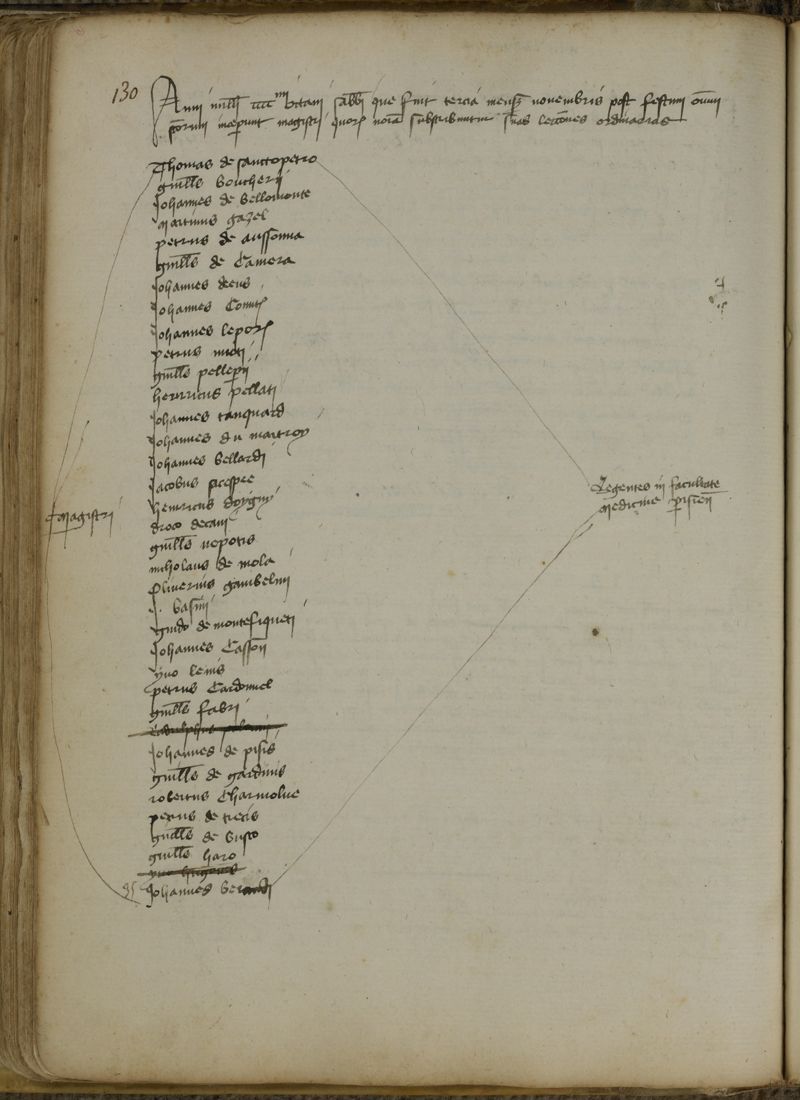 130
Anni mill cccc octavi sabbi que fuit tercia mens novembris post festum omni
scorum inceperunt magistri quorum noia subscribuntur suas lectiones ordinarias
Thomas de sanctopetro
guills boucherii
Johannes de bellomonte
martinus gazel
petrus de aussonna
guills de Camera
Johannes
Johannes Comitis
Johannes leporis
petrus
guills pellepii
henricus pellati
Johannes tanquard
Johannes du martroy
Johannes bellardi
Jacobus
henricus doxigny
droco decani
guills nepotis
nicholaus de mola
Oliverius gambelini
J. basini
guido de montefiqueti
Johannes Casson
yvo lenis
petrus Cardonnel
guills fabri
Johannes de pisis
guills de gardinis
robertus Charmolue
petrus de trecis
guills de busco
guills haro
35 Johannes berardi
magistri
Regentes in facultate
medicine parisien